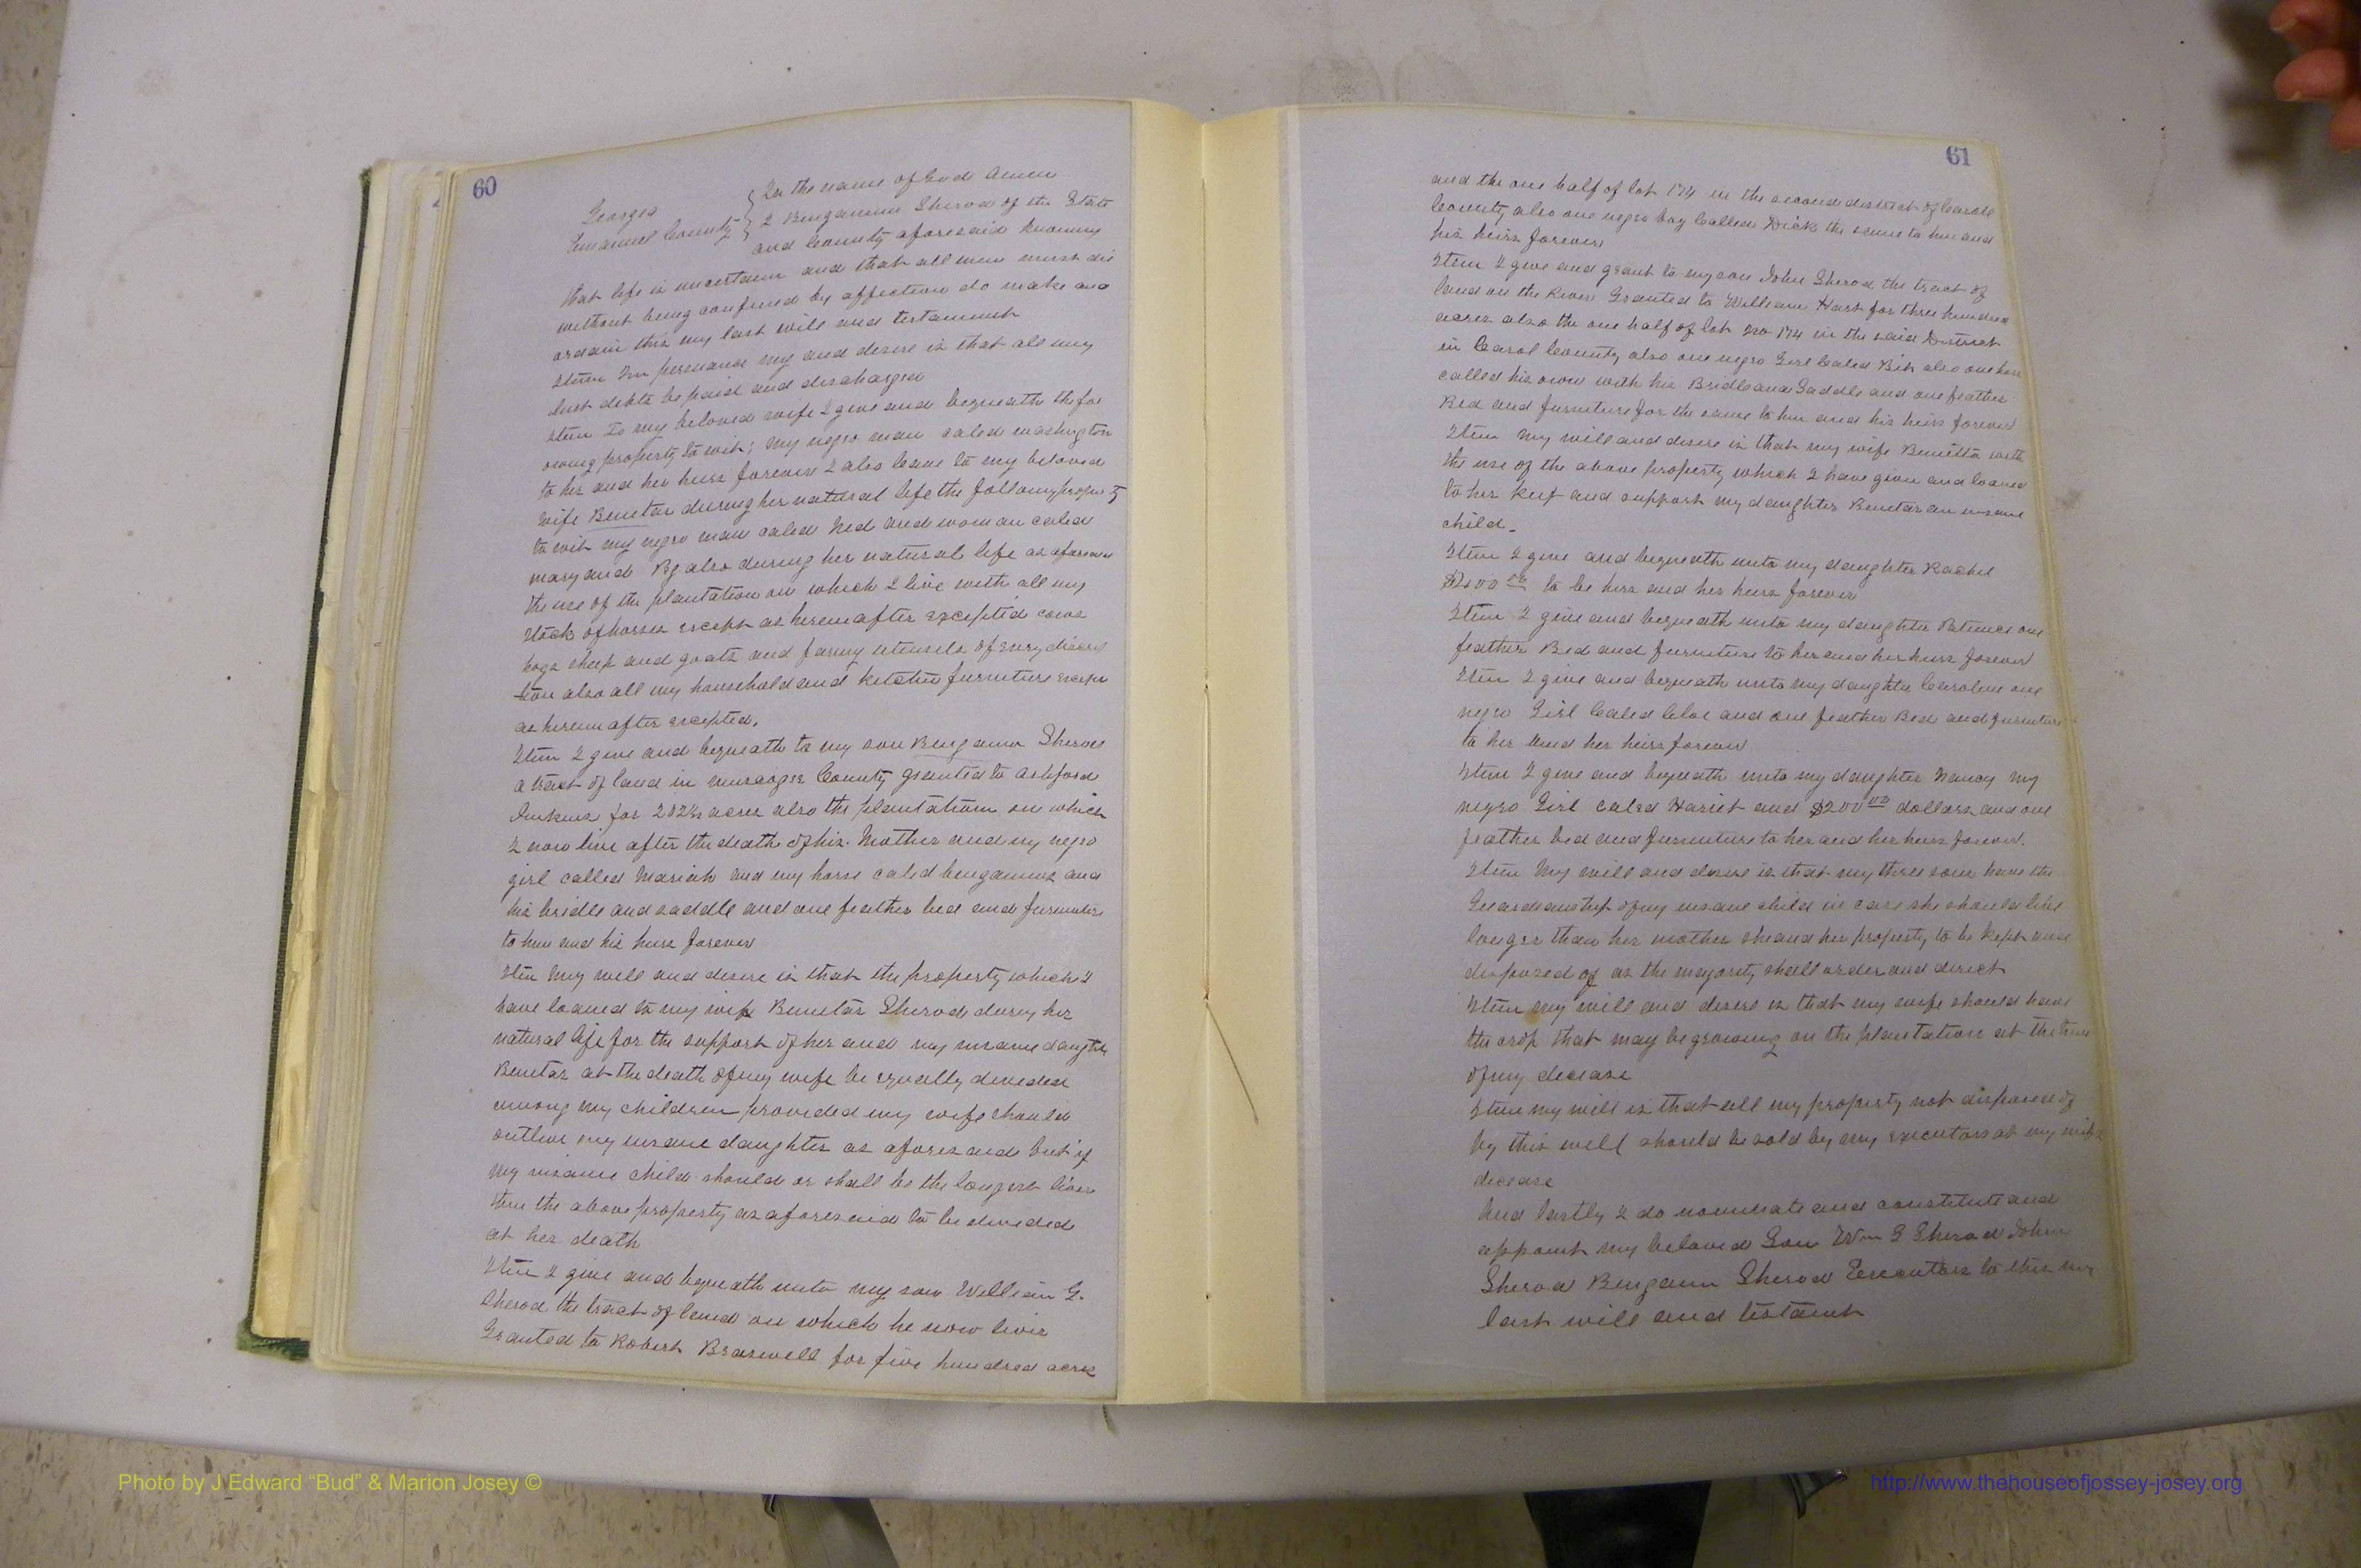 60
Georgia
Emanuel County
In the name of God Amen
I Bengamin Sherod of the State
and County aforesaid knowing
that life is uncertain and that all men must die
without being confined by affection do make and
ordain this my last will and testament
Item In persuance my and desire is that all my
Just debts be paid and discharged
Item To my beloved wife I give and bequeath the fol
owing property to wit; my negro man caled washington
to her and her heirs forever I also leave to my beloved
wife Benetar during her natural life the following property
to wit my negro man caled Ned and woman caled
mary and also during her natural life as aforesaid
the use of the plantation on which I live with all my
stock of horses except as hereinafter excepted cows
hogs sheep and goats and farmg utensels of every discrip
tion also all my household and Kitchen furniture except
as hereinafter excepted.
Item I give and bequeath to my son Bengamin Sherod
a tract of land in muscogee County granted to Ashford
Jinkins for 202½ acres also the plantation on which
I now live after the death of his Mother and my negro
girl called Mariah and my horse caled bengamins and
his bridle and saddle and one feather bed and furniture
to him and his heirs forever
Item My will and desire is that the property which I
have loaned to my wife Benetar Sherod during her
natural life for the support of her and my insane daughter
Benetar at the death of my wife be equally devided
among my children provided my wife should
outlive my insane daughter as aforesaid but if
my insane child should or shall be the longest liver
then the above property as aforesaid to be devided
at her death
Item I give and bequeath unto my son William G.
Sherod the tract of land on which he now lives
Granted to Robert Braswell for five hundred acres
61
and the one half of lot 174 in the second district of Carole
County also one negro boy Called Dick the same to him and
his heirs forever
Item I give and grant to my son John Sherod the tract of
land on the River Granted to William Hart for three hundred
acres also the one half of lot No 174 in the said District
in Carol County also one negro Girl Caled also one horse
called his own with his Bridle and Saddle and one feather
Bed and furniture for the same to him and his heirs forever
Item My will and desire is that my wife Benetta with
the use of the above property which I have given and loaned
to her keep and support my daughter Benetar an insane
child.
Item I give and bequeath unto my daughter Rachel
to be hers and her heirs forever
Item I give and bequeath unto my daughter Patience one
feather Bed and furniture to her and her heirs forever
Item I give and bequeath unto my daughter Caroline one
negro Girl Caled Cloe and one feather Bed and furniture
to her and her heirs forever
Item I give and bequeath unto my daughter Nancy my
negro Girl caled Hariet and $200 00 dollars and one
feather bed and furniture to her and her heirs forever.
Item My will and desire is that my three sons have the
Guardianship of my insane child in case she should live
longer than her mother she and her property to be kept and
disposed of as the majority shall order and direct
Item my will and desire is that my wife should have
the crop that may be growing on the plantation at the time
of my decease
Item my will is that all my property not disposed of
by this will should be sold by my executors at my wifes
decease
And lastly I do nominate and constitute and
appoint my beloved Son Wm G Sherod John
Sherod Bengamin Sherod Executors to this my
last will and testament
Photo by J Edward “Bud” & Marion Josey ©
http://www.thehouseofjossey-josey.org